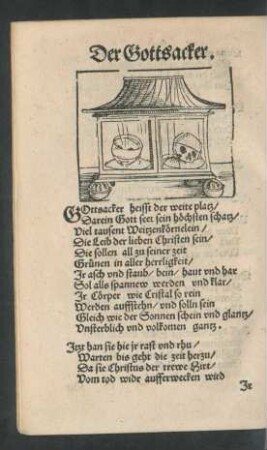 Der Gottsacker.
GOttsacker heisst der weite platz/
Darein Gott seet sein höchsten schatz/
Viel tausent Weitzenkörnelein/
Die Leib der lieben Christen sein/
Die sollen all zu seiner zeit
Grünen in aller herrligkeit/
Jr asch vnd staub/ bein/ haut vnd har
Sol alls spannew werden vnd klar/
Jr Cörper wie Cristal so rein
Werden aufferstehn/ vnd solln sein
Gleich wie der Sonnen schein vnd glantz/
Vnsterblich vnd volkomen gantz.
Jetzt han sie hie jr rast vnd rhu/
Warten bis geht die zeit herzu/
Da sie Christus der trewe Hirt/
Vom tod wider aufferwecken wird
Je